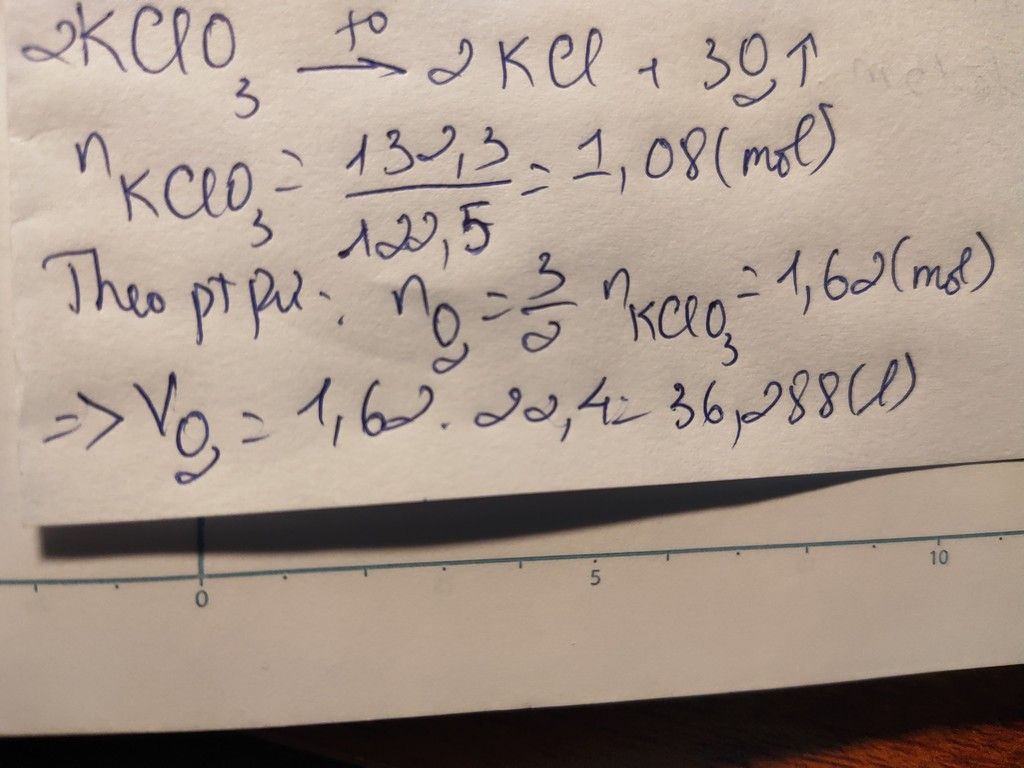 2KClO₃ —t⁰→ 2KCl + 3O₂↑
nKClO₃ = 132,3/122,5 = 1,08(mol)
Theo ptpư: nO₂ = 3/2 nKClO₃ = 1,62(mol)
=> VO₂ = 1,62 . 22,4 = 36,288(l)
0 5 10